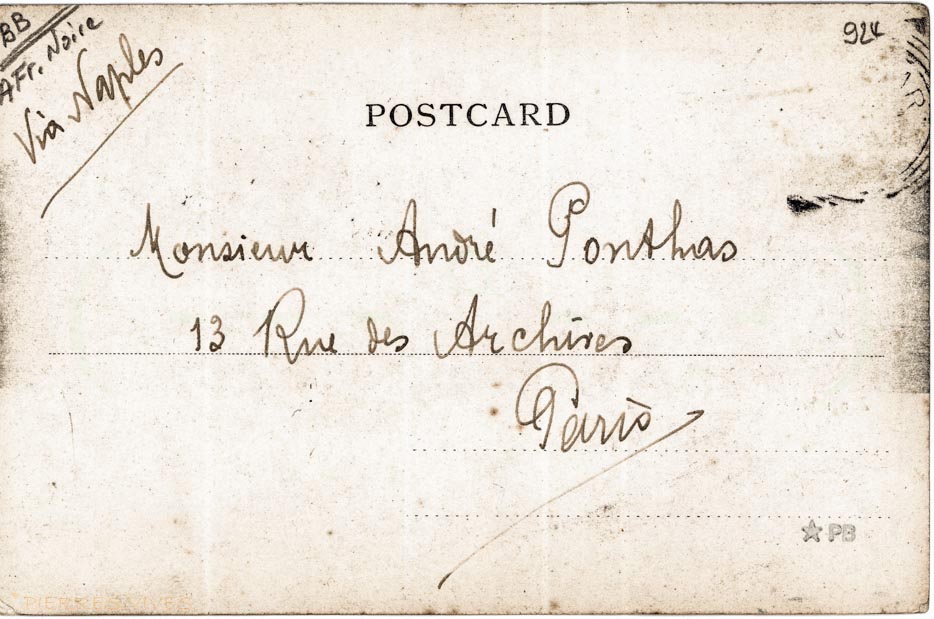 BB
Afr. Noire
Via Naples
924
POSTCARD
Monsieur André Ponthas
13 Rue des Archives
Paris
PB